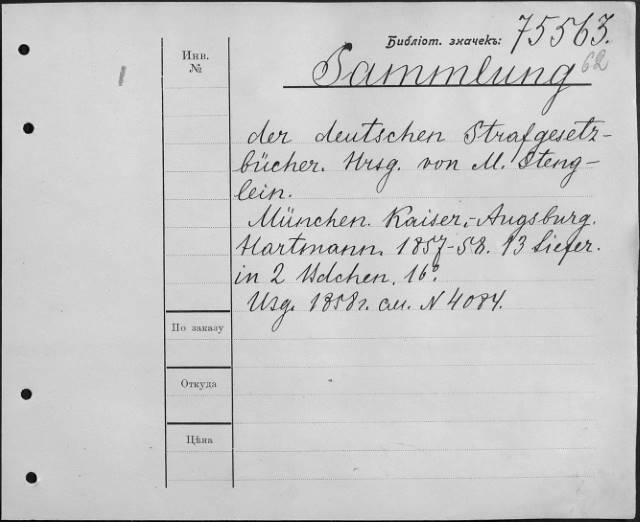 Библіот. значекъ: 75563.
62
Инв.
№
Sammlung
der deutschen Strafgesetz-
bücher. Hrsg. von M. Steng-
lein.
München. Kaiser,-Augsburg.
Hartmann. 1857-58. 13 Liefer.
in 2 Bdchen. 16°.
Изд. 1858г. см. N 4084.
По заказу
Откуда
Цѣна